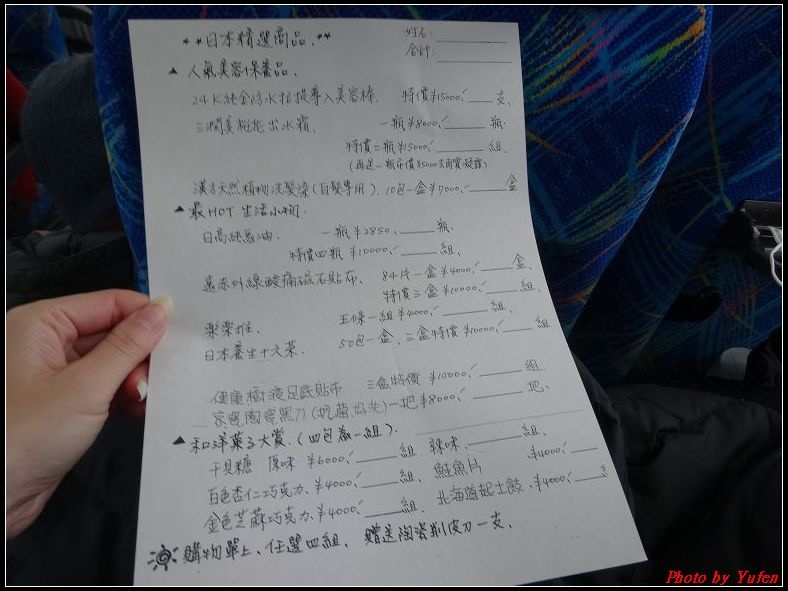 **日本精選商品、** 姓名:
合計:
▲人氣美容保養品、
24K純金防水拉提導入美容棒、 特價¥15000、 支、
一瓶¥8000、 瓶、
特價二瓶¥15000、 組、
漢方天然植物洗髮染(白髮專用)、10包一盒¥7000、 盒
▲最HOT生活小物、
日高純馬油、 一瓶¥2850、 瓶、
特價四瓶¥10000、 組、
遠赤外線酸痛磁石貼布、 84片一盒¥4000、 盒、
特價三盒¥10000、 組、
五條一組¥4000、 組、
日本養生十六茶、 50包一盒、三盒特價¥10000、 組
健康樹液足底貼布 三盒特價 ¥10000、 組
京瓷陶瓷黑刀(抗菌、好洗)一把¥8000、 把、
▲和洋菓子大賞、(四包為一組)、
干貝糖 原味 ¥6000、 組、辣味、 組、
白色杏仁巧克力、¥4000、 組、鮭魚片 ¥4000、
金色芝麻巧克力、¥4000、 組、北海道起士餃、¥4000、
購物單上、任選四組、 贈送陶瓷削皮刀一支、
Photo by Yufen